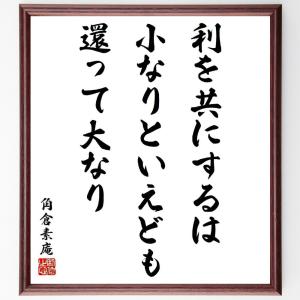 利を共にするは
小なりといえども
還って大なり
角倉素庵